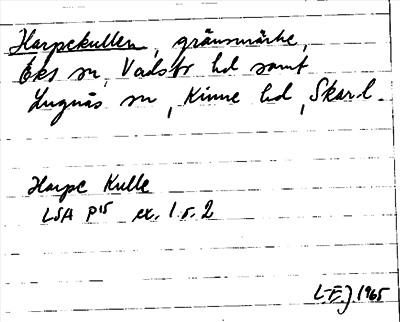 Harpekullen, gränsmärke,
Eks sn, Vadsbo hd samt
Lugnås sn, Kinne hd, Skar.l.
Harpe Kulle
LSA P15 ex. 1 s. 2
L-EJ 1965